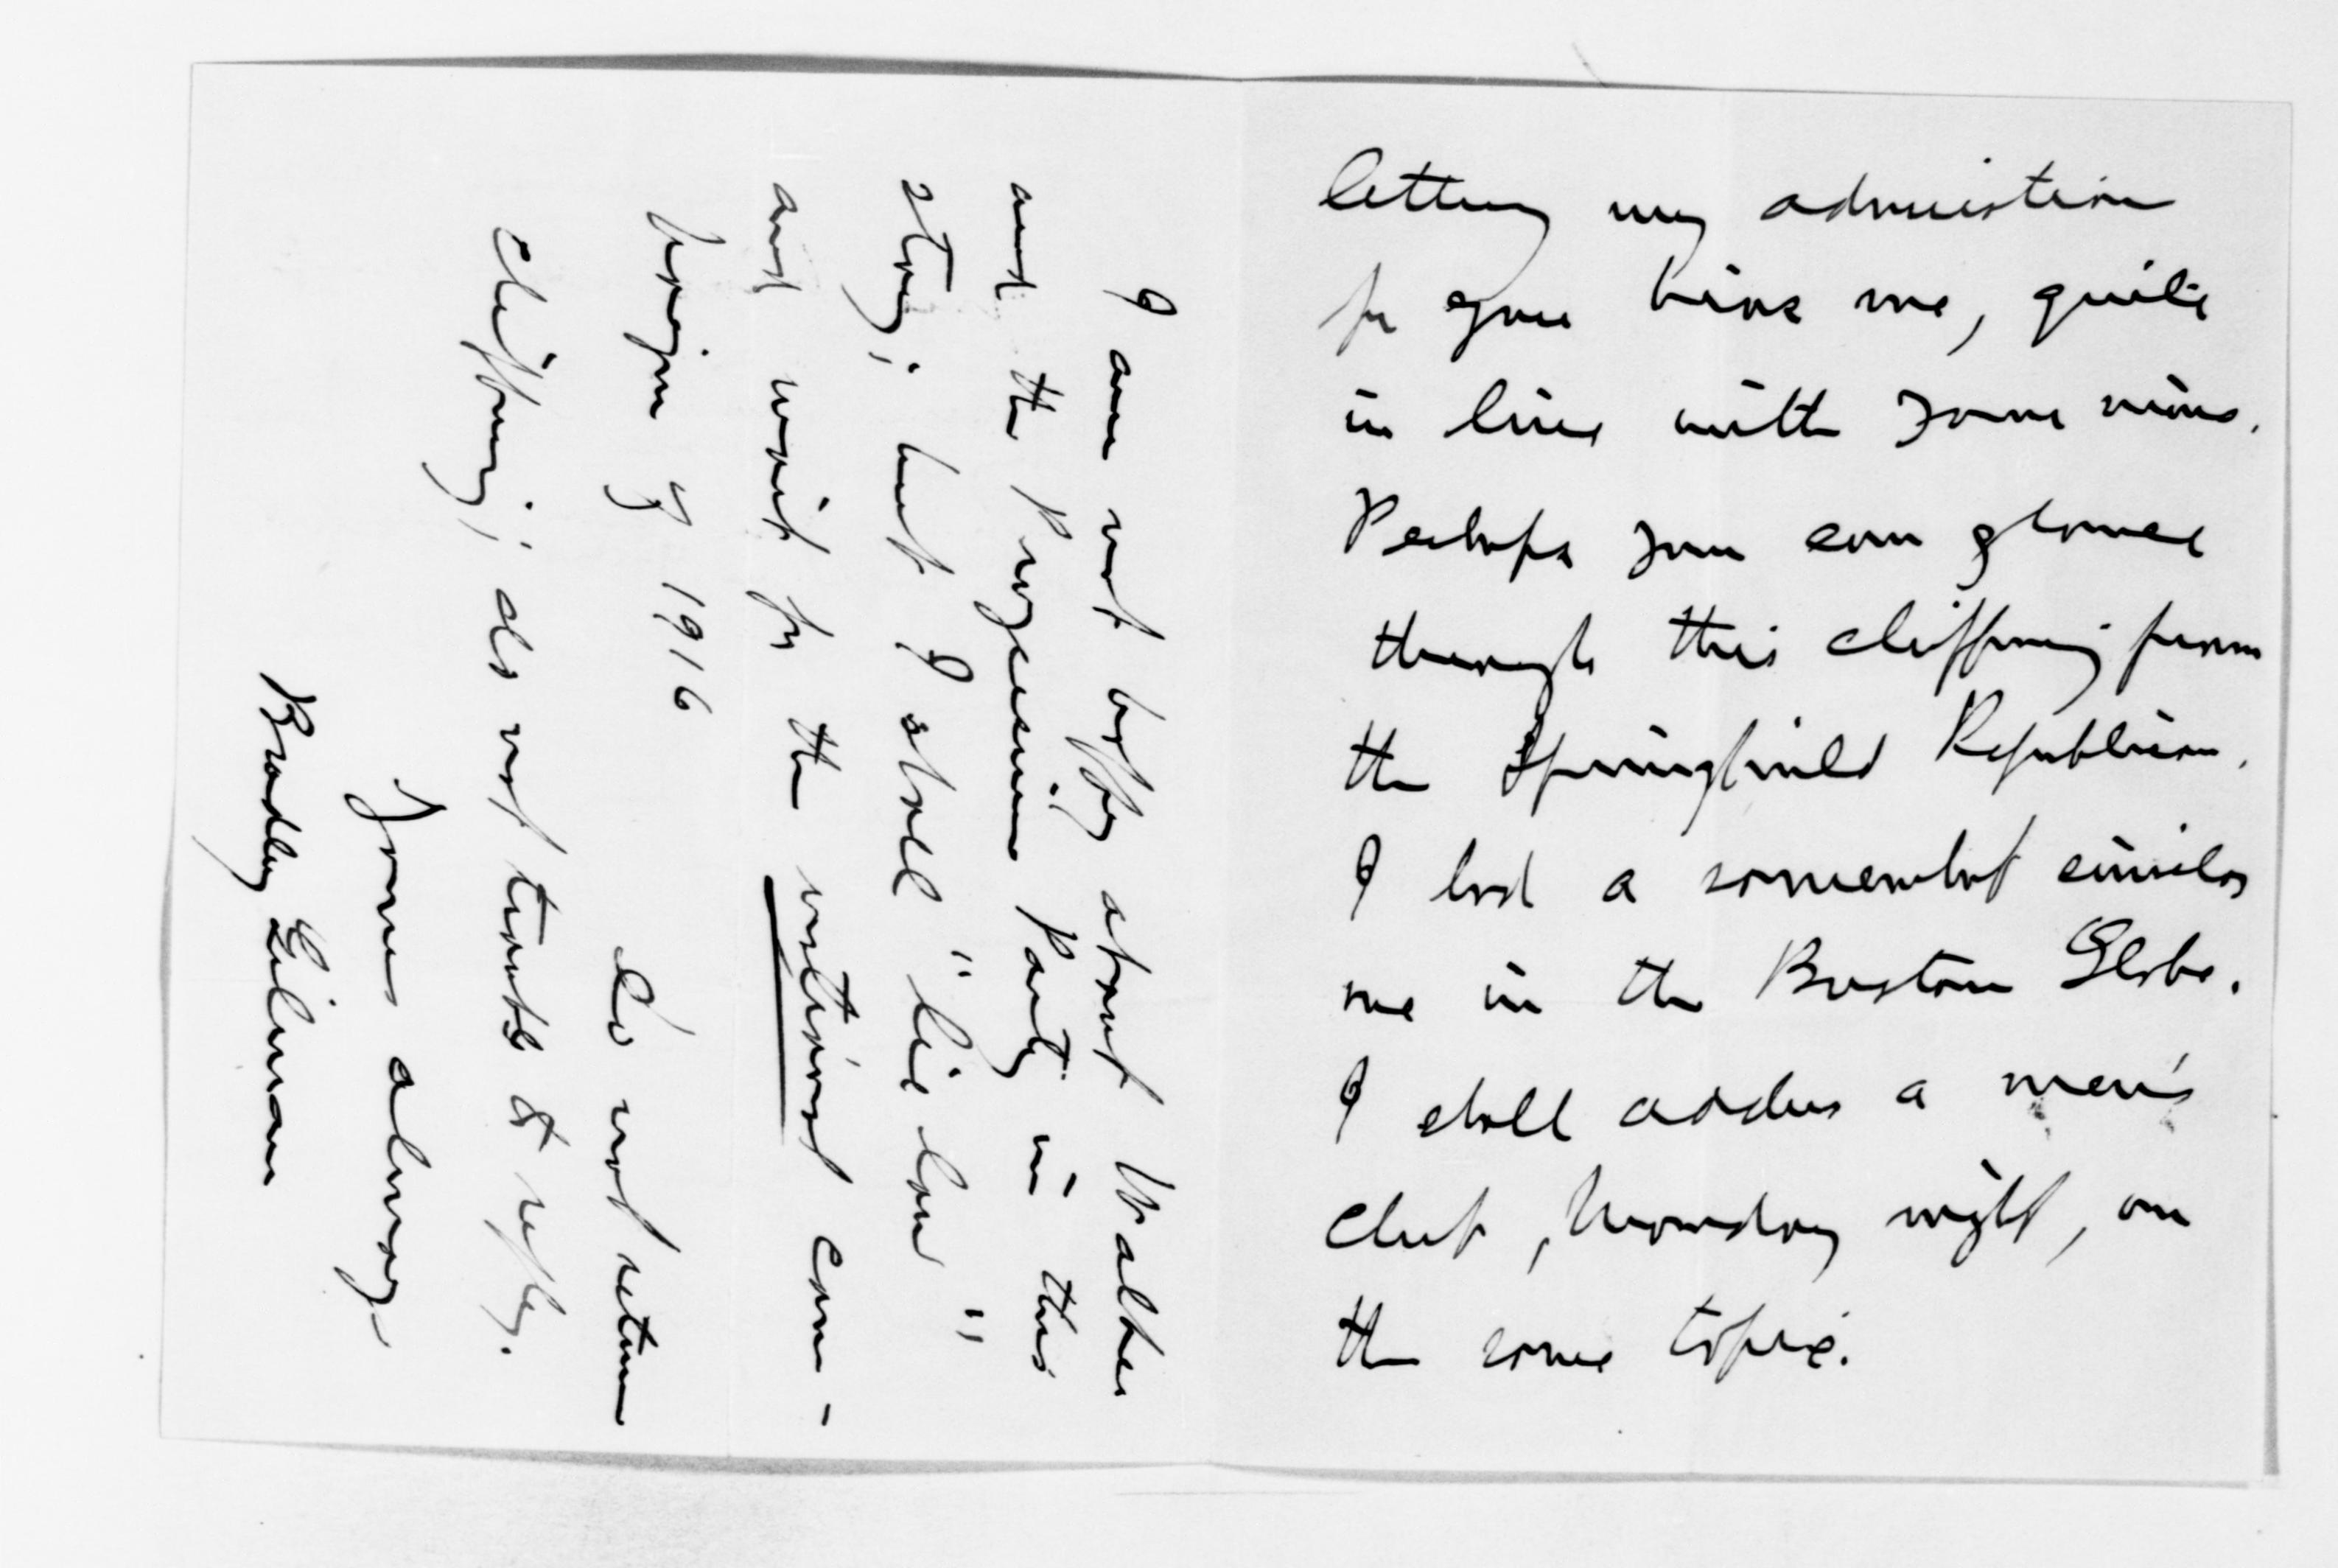 letting my admiration
for you bias me, quite
in line with your views.
Perhaps you can glance
through this clipping from
the Springfield Republican.
I had a somewhat similar
one in the Boston Globe.
I shall address a men's
club, Monday night, on
the same topic.
I am not happy about Walker
and the Progressive Party in this
story; but I shall "lie low"
and wait for the national cam-
paign of 1916
Do not return
clipping; do not trouble to reply.
Yours always,
Bradley Gilman